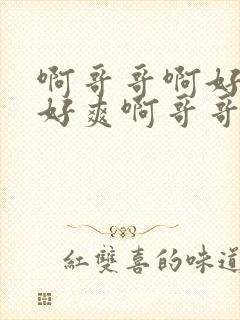 啊哥哥啊好
好爽啊哥哥
紅雙喜的味道